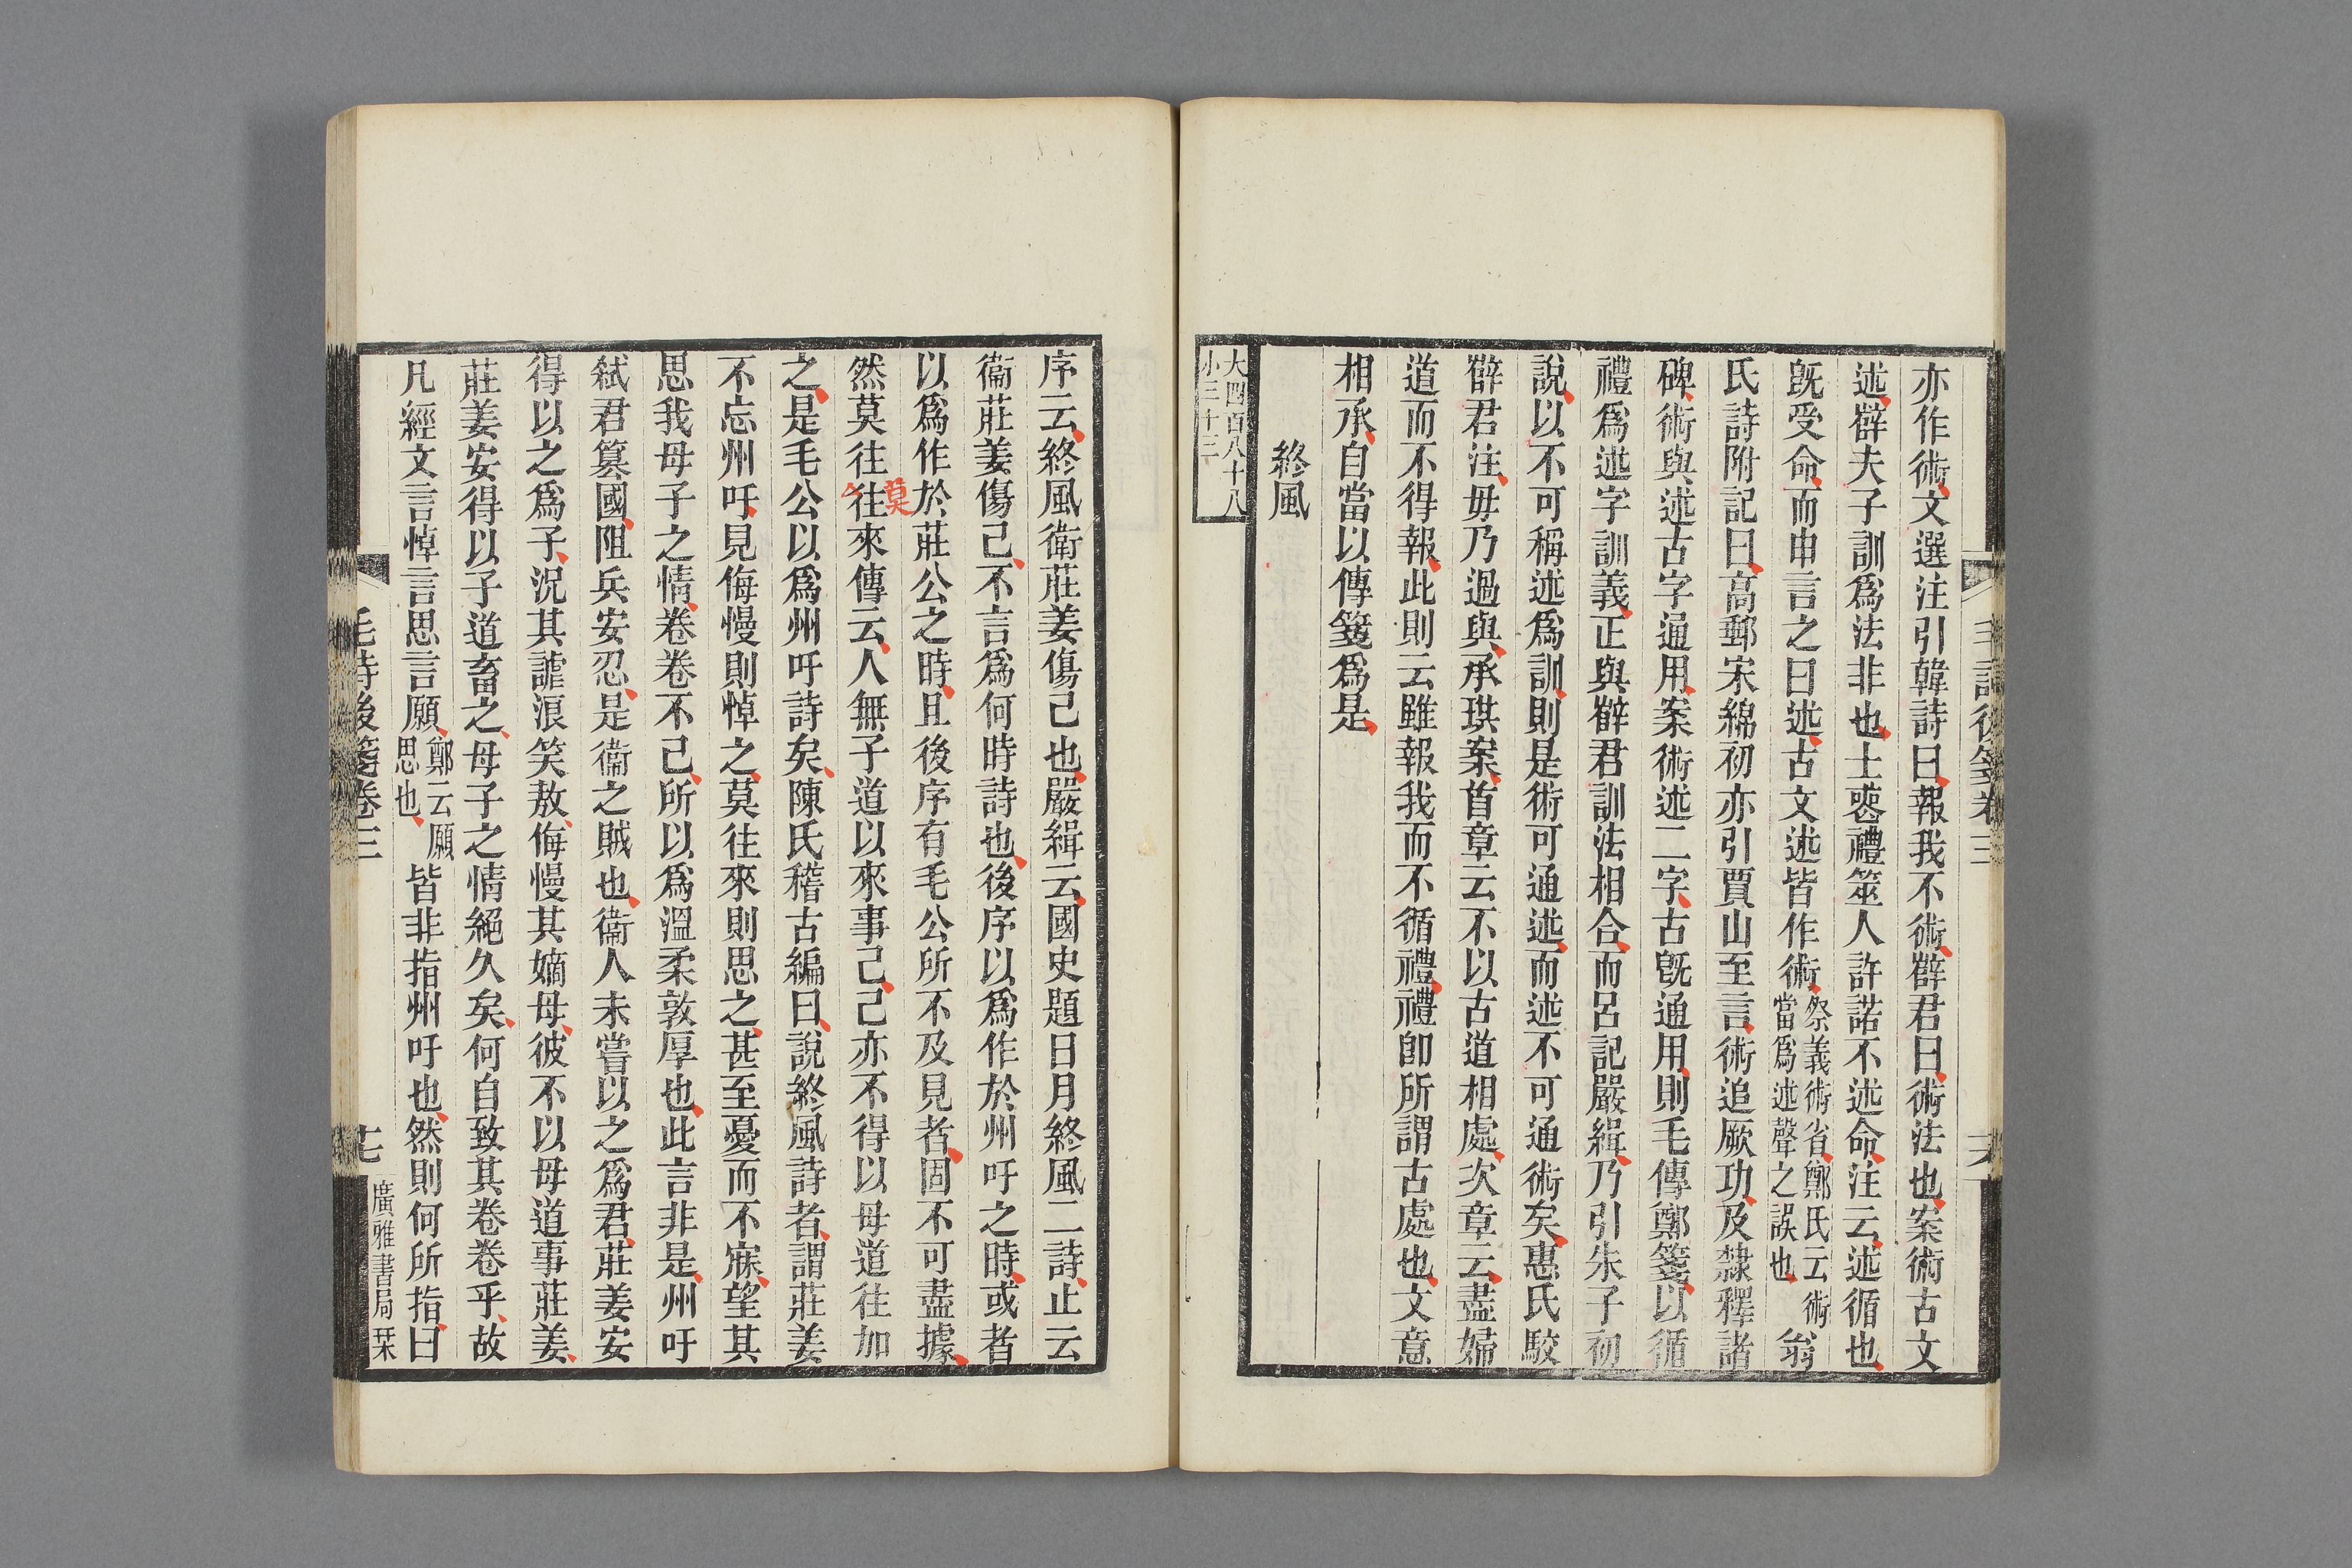 毛詩後箋卷三
十六
亦作術文選注引韓詩曰報我不術薛君曰術法也案術古文
述薛夫子訓為法非也士喪禮筮人許諾不述命注云述循也
旣受命而申言之曰述古文述皆作術祭義術省鄭氏云術當爲述聲之誤也翁
氏詩附記曰高郵宋綿初亦引賈山至言術追厥功及隸釋諸
碑術與述古字通用案術述二字古旣通用則毛傳鄭箋以循
禮爲述字訓義正與薛君訓法相合而呂記嚴緝乃引朱子初
說以不可稱述爲訓則是術可通述而述不可通術矣惠氏駮
薛君注毋乃過與承珙案首章云不以古道相處次章云盡婦
道而不得報此則云雖報我而不循禮禮卽所謂古處也文意
相承自當以傳箋爲是
終風
大四百八十八
小三十三
序云終風衛莊姜傷己也嚴緝云國史題日月終風二詩止云
衞莊姜傷己不言爲何時詩也後序以爲作於州吁之時或者
以爲作於莊公之時且後序有毛公所不及見者固不可盡據
然莫往往來傳云人無子道以來事己己亦不得以母道往加
莫
之是毛公以爲州吁詩矣陳氏稽古編曰說終風詩者謂莊姜
不忘州吁見侮慢則悼之莫往來則思之甚至憂而不寐望其
思我母子之情卷卷不已所以爲溫柔敦厚也此言非是州吁
弑君簒國阻兵安忍是衞之賊也衞人未嘗以之爲君莊姜安
得以之爲子況其謔浪笑敖侮慢其嫡母彼不以母道事莊姜
莊姜安得以子道畜之母子之情絕久矣何自致其卷卷乎故
凡經文言悼言思言願鄭云願思也皆非指州吁也然則何所指曰
毛詩後箋卷三
十七
廣雅書局栞